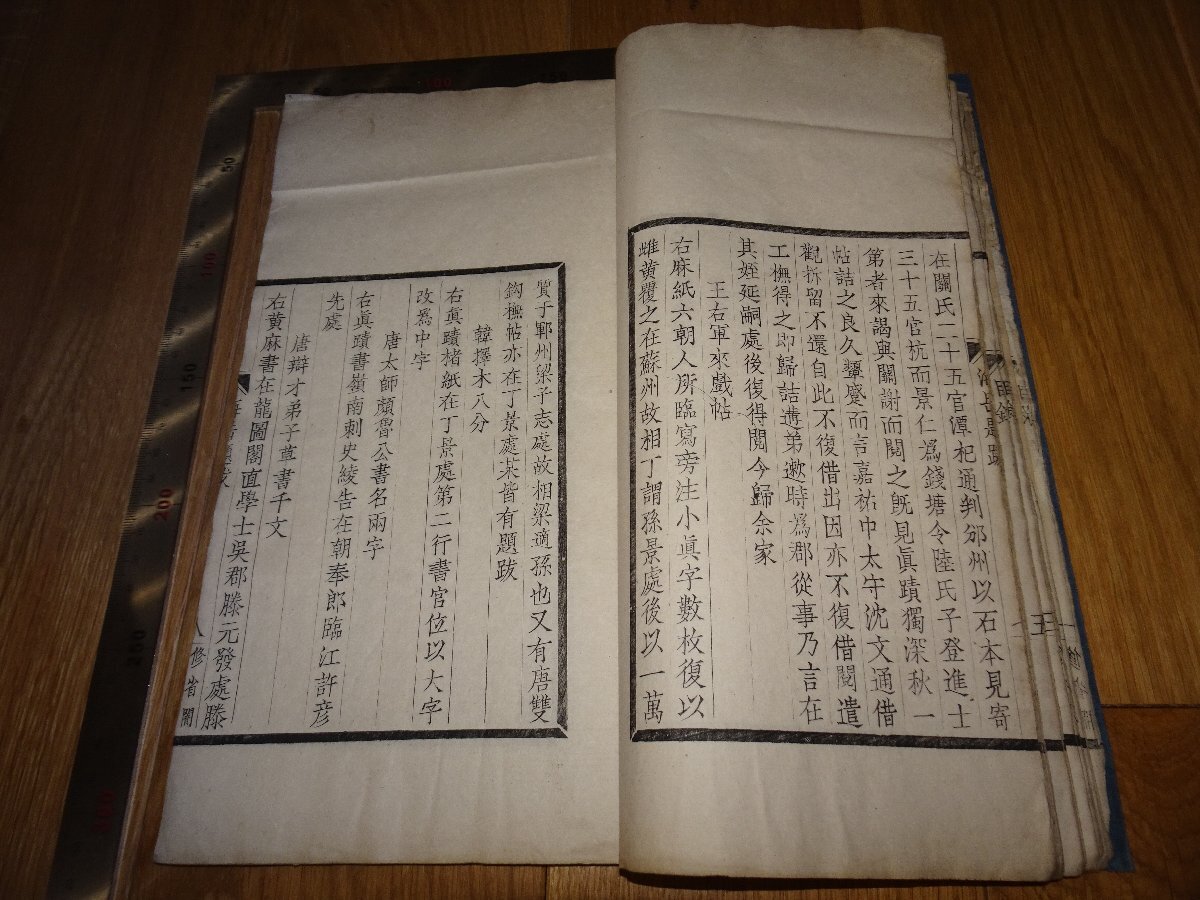 在關氏二十五官潭杞通判邠州以石本見寄
三十五官抗而景仁爲錢塘令陸氏子登進士
第者來謁與關謝而閱之旣見眞蹟獨深秋一
帖詰之良久顰蹙而言嘉祐中太守沈文通借
觀拆留不還自此不復借出因亦不復借閱遣
工橅得之即歸詰遘弟遬時爲郡從事乃言在
其姪延嗣處後復得閱今歸余家
王右軍來戲帖
右麻紙六朝人所臨寫旁注小眞字數枚復以
雌黃覆之在蘇州故相丁謂孫景處後以一萬
質于鄆州梁子志處故相梁適孫也又有唐雙
鈎橅帖亦在丁景處某皆有題跋
韓擇木八分
右眞蹟楮紙在丁景處第二行書官位以大字
改爲中字
唐太師顏魯公書名兩字
右眞蹟書嶺南刺史綾告在朝奉郎臨江許彦
先處
唐辯才弟子草書千文
右黃麻書在龍圖閣直學士吳郡滕元發處滕
八
修省閣
目錄
五
50
100
150
200
250
300
100